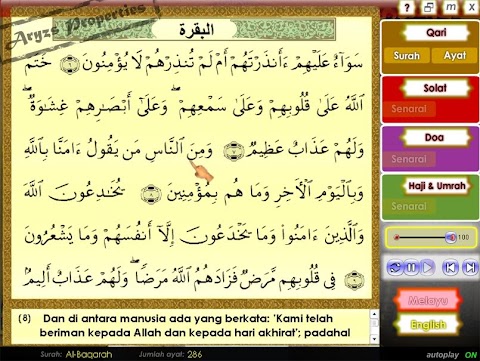 Aryzs Properties
البقرة
سَوَآءٌ عَلَيْهِمْ ءَأَنذَرْتَهُمْ أَمْ لَمْ تُنذِرْهُمْ لَا يُؤْمِنُونَ ٦ خَتَمَ
اللَّهُ عَلَىٰ قُلُوبِهِمْ وَعَلَىٰ سَمْعِهِمْ ۖ وَعَلَىٰ أَبْصَارِهِمْ غِشَاوَةٌ ۖ
وَلَهُمْ عَذَابٌ عَظِيمٌ ٧ وَمِنَ النَّاسِ مَن يَقُولُ ءَامَنَّا بِاللَّهِ
وَبِالْيَوْمِ الْآخِرِ وَمَا هُم بِمُؤْمِنِينَ ٨ يُخَادِعُونَ اللَّهَ
وَالَّذِينَ ءَامَنُوا وَمَا يَخْدَعُونَ إِلَّا أَنفُسَهُمْ وَمَا يَشْعُرُونَ
فِي قُلُوبِهِم مَّرَضٌ فَزَادَهُمُ اللَّهُ مَرَضًا ۖ وَلَهُمْ عَذَابٌ أَلِيمٌ
(8) Dan di antara manusia ada yang berkata: 'Kami telah
beriman kepada Allah dan kepada hari akhirat'; padahal
Surah: Al-Baqarah Jumlah ayat: 286
? m x
Qari
Surah Ayat
Solat
Senarai
Doa
Senarai
Haji & Umrah
Senarai
100
Melayu
English
autoplay ON